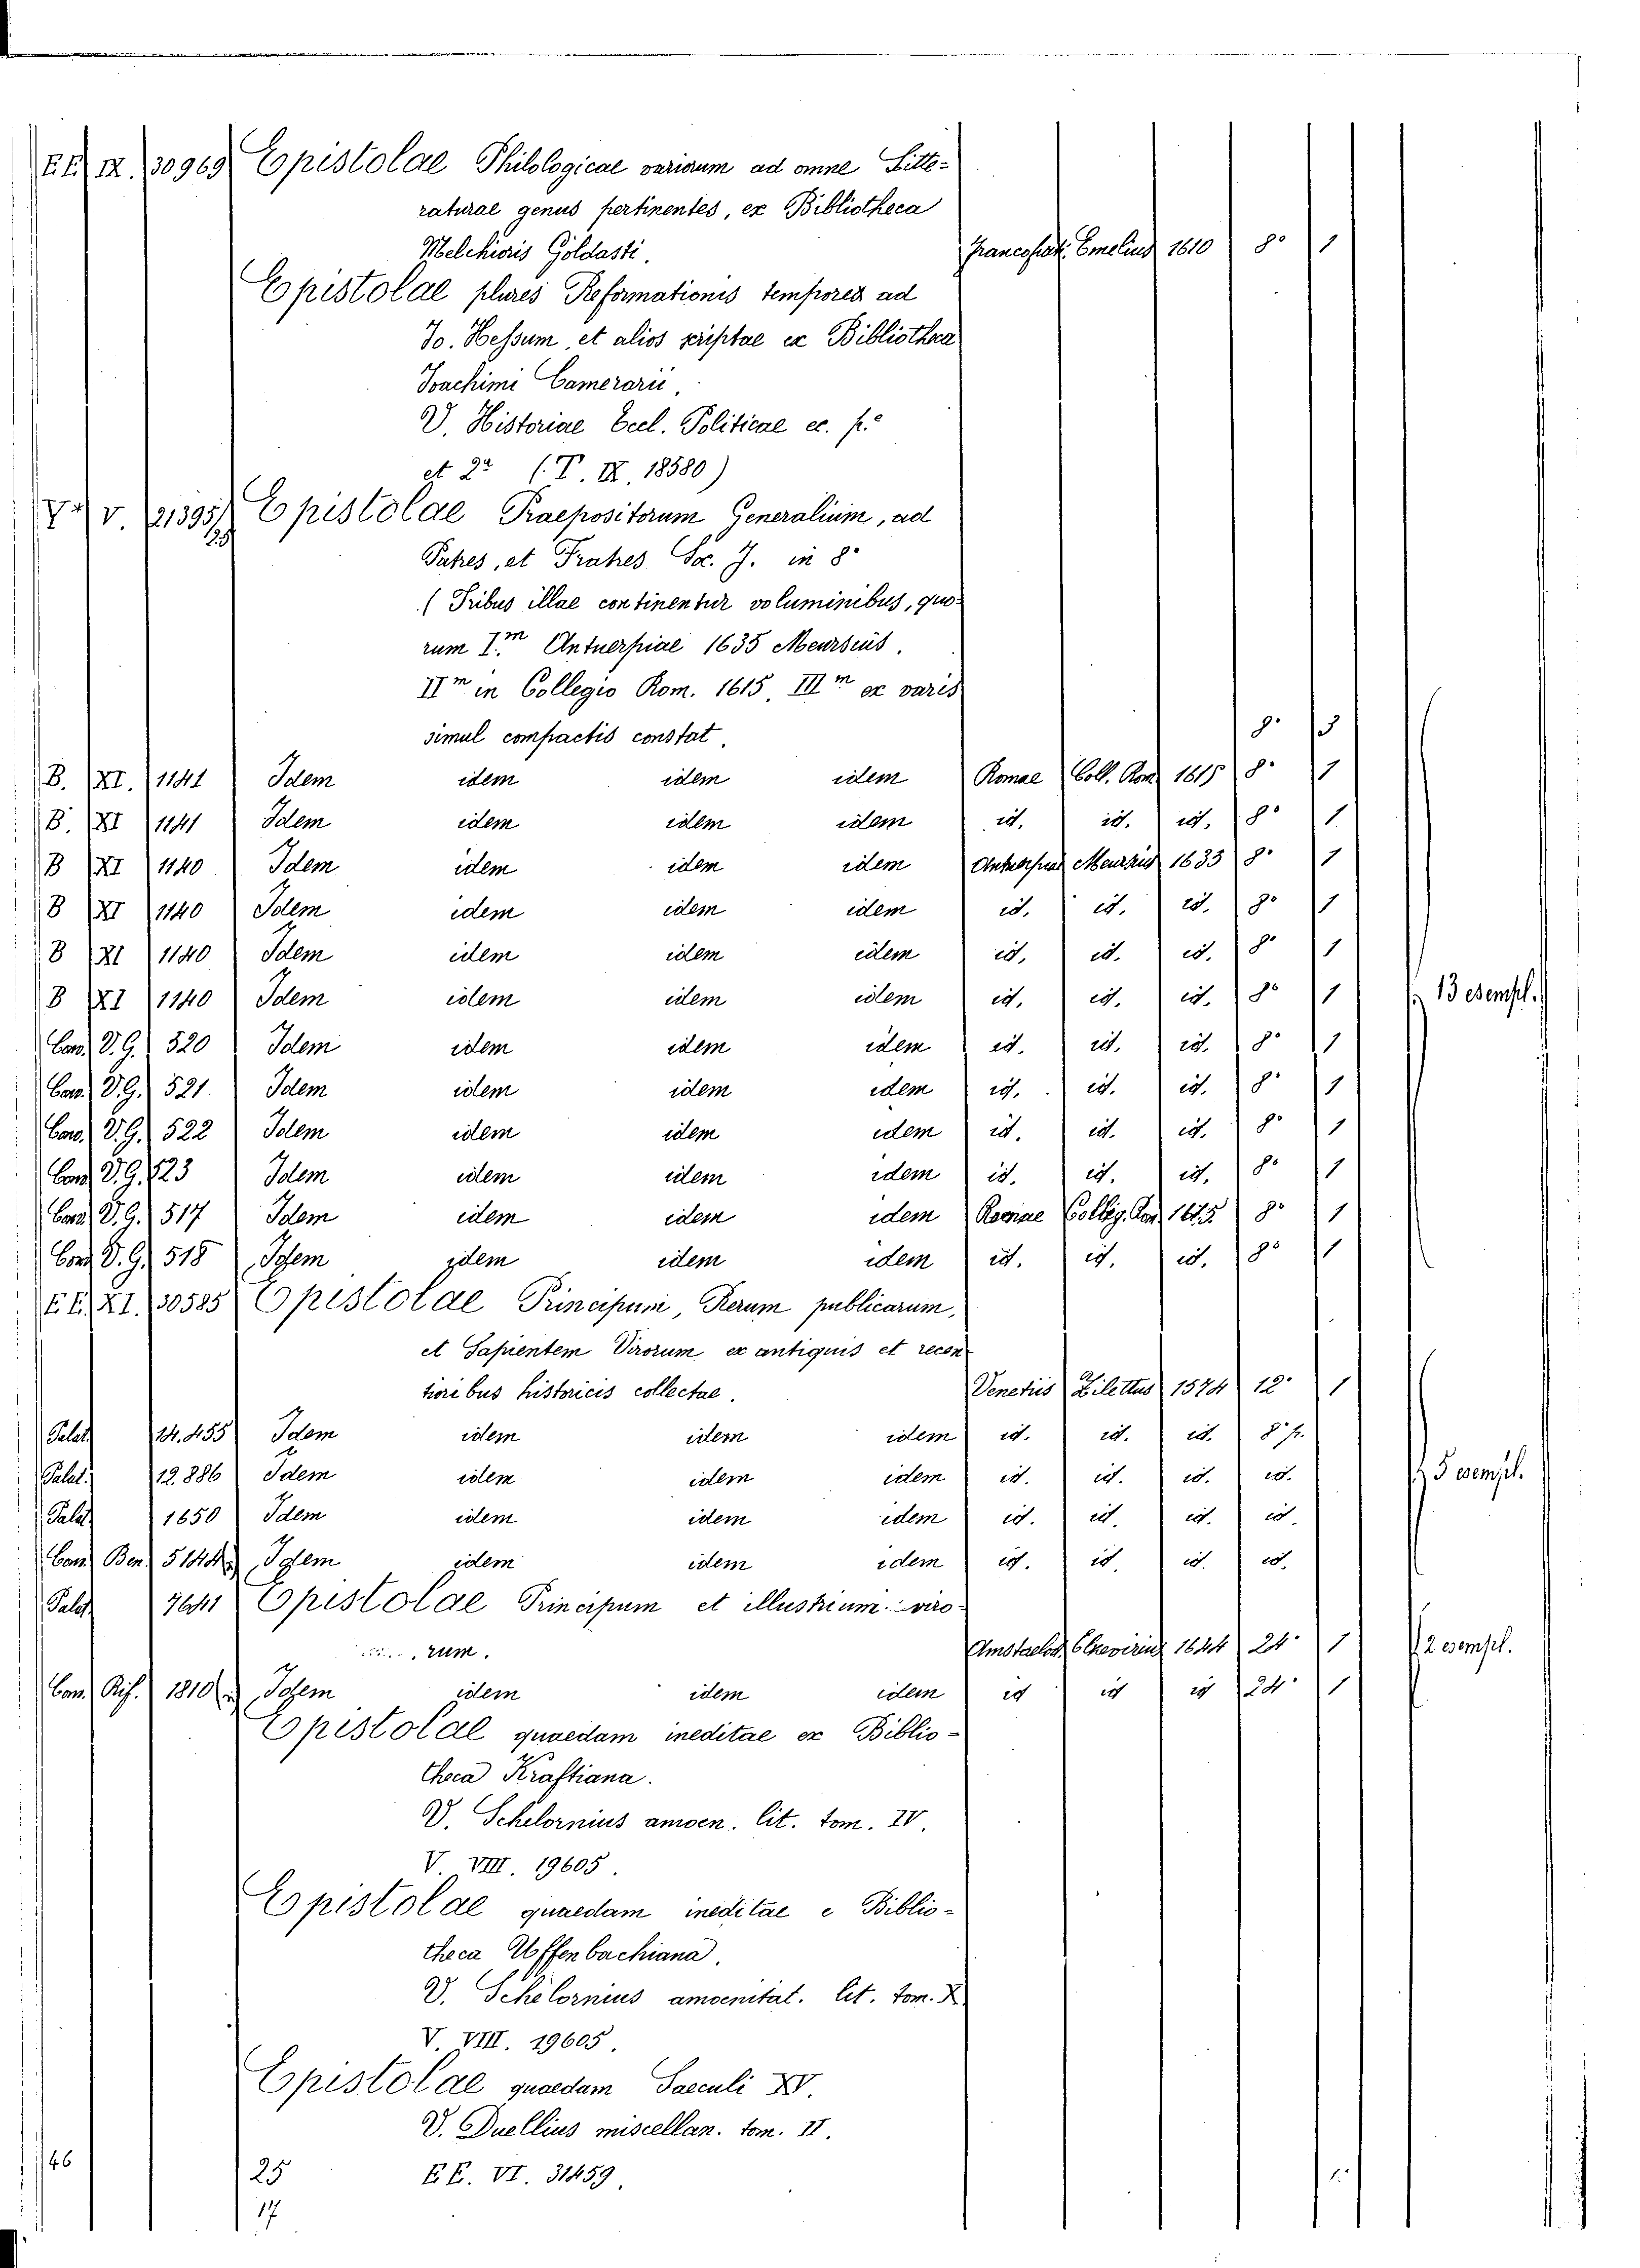 EE IX. 30969 Epistolae Philologicae variorum ad omne Litte-
raturae genus pertinentes, ex Bibliotheca
Melchioris Goldasti. Francofurt. Emelius 1610 8° 1
Epistolae plures Reformationis tempores ad
Jo. Hessum, et alios scriptae ex Bibliotheca
Joachimi Camerarii,
V. Historiae Eccl. Politicae ec. p.e
et 2a (T. IX. 18580)
V. 21395/25 Epistolae Praepositorum Generalium, ad
Patres, et Fratres Soc. J. in 8°
(Tribus illae continentur voluminibus, quo-
rum I.m Antuerpiae 1635 Meursius.
IIm in Collegio Rom. 1615, IIIm ex variis
simul compactis constat. 8° 3
B. XI. 1141 Idem idem idem idem Romae Coll. Rom. 1615 8° 1
B. XI 1141 Idem idem idem idem id. id. id. 8° 1
B XI 1140 Idem idem idem idem Antuerpiae Meursius 1635 8° 1
B XI 1140 Idem idem idem idem id. id. id. 8° 1
B XI 1140 Idem idem idem idem id. id. id. 8° 1
B XI 1140 Idem idem idem idem id. id. id. 8° 1 13 esempl.
Con. V.G. 520 Idem idem idem idem id. id. id. 8° 1
Con. V.G. 521. Idem idem idem idem id. id. id. 8° 1
Con. V.G. 522 Idem idem idem idem id. id. id. 8° 1
Con. V.G. 523 Idem idem idem idem id. id. id. 8° 1
Con. V.G. 517 Idem idem idem idem Romae Colleg. Rom. 1615 8° 1
Con. V.G. 518 Idem idem idem idem id. id. id. 8° 1
EE. XI. 30585 Epistolae Principum, Rerum publicarum,
et Sapientem Virorum ex antiquis et recen-
tioribus historicis collectae. Venetiis Zilettus 1574 12° 1
Palat. 14.455 Idem idem idem idem id. id. id. 8° p.
Palat. 12.886 Idem idem idem idem id. id. id. id. 5 esempl.
Palat. 1650 Idem idem idem idem id. id. id. id.
Con. Ben. 5144 Idem idem idem idem id. id. id. id.
Palat. 7641 Epistolae Principum et illustrium viro-
rum. Amstaelod. Elzevirius 1644 24° 1 2 esempl.
Con. Rif. 1810 Idem idem idem idem id id id 24° 1
Epistolae quaedam ineditae ex Biblio-
theca Kraftiana.
V. Schelornius amoen. lit. tom. IV.
V. VIII. 19605.
Epistolae quaedam ineditae e Biblio-
theca Uffenbachiana.
V. Schelornius amoenitat. lit. tom. X
V. VIII. 19605.
Epistolae quaedam Saeculi XV.
V. Duellius miscellan. tom. II.
46 25 EE. VI. 31459.
17